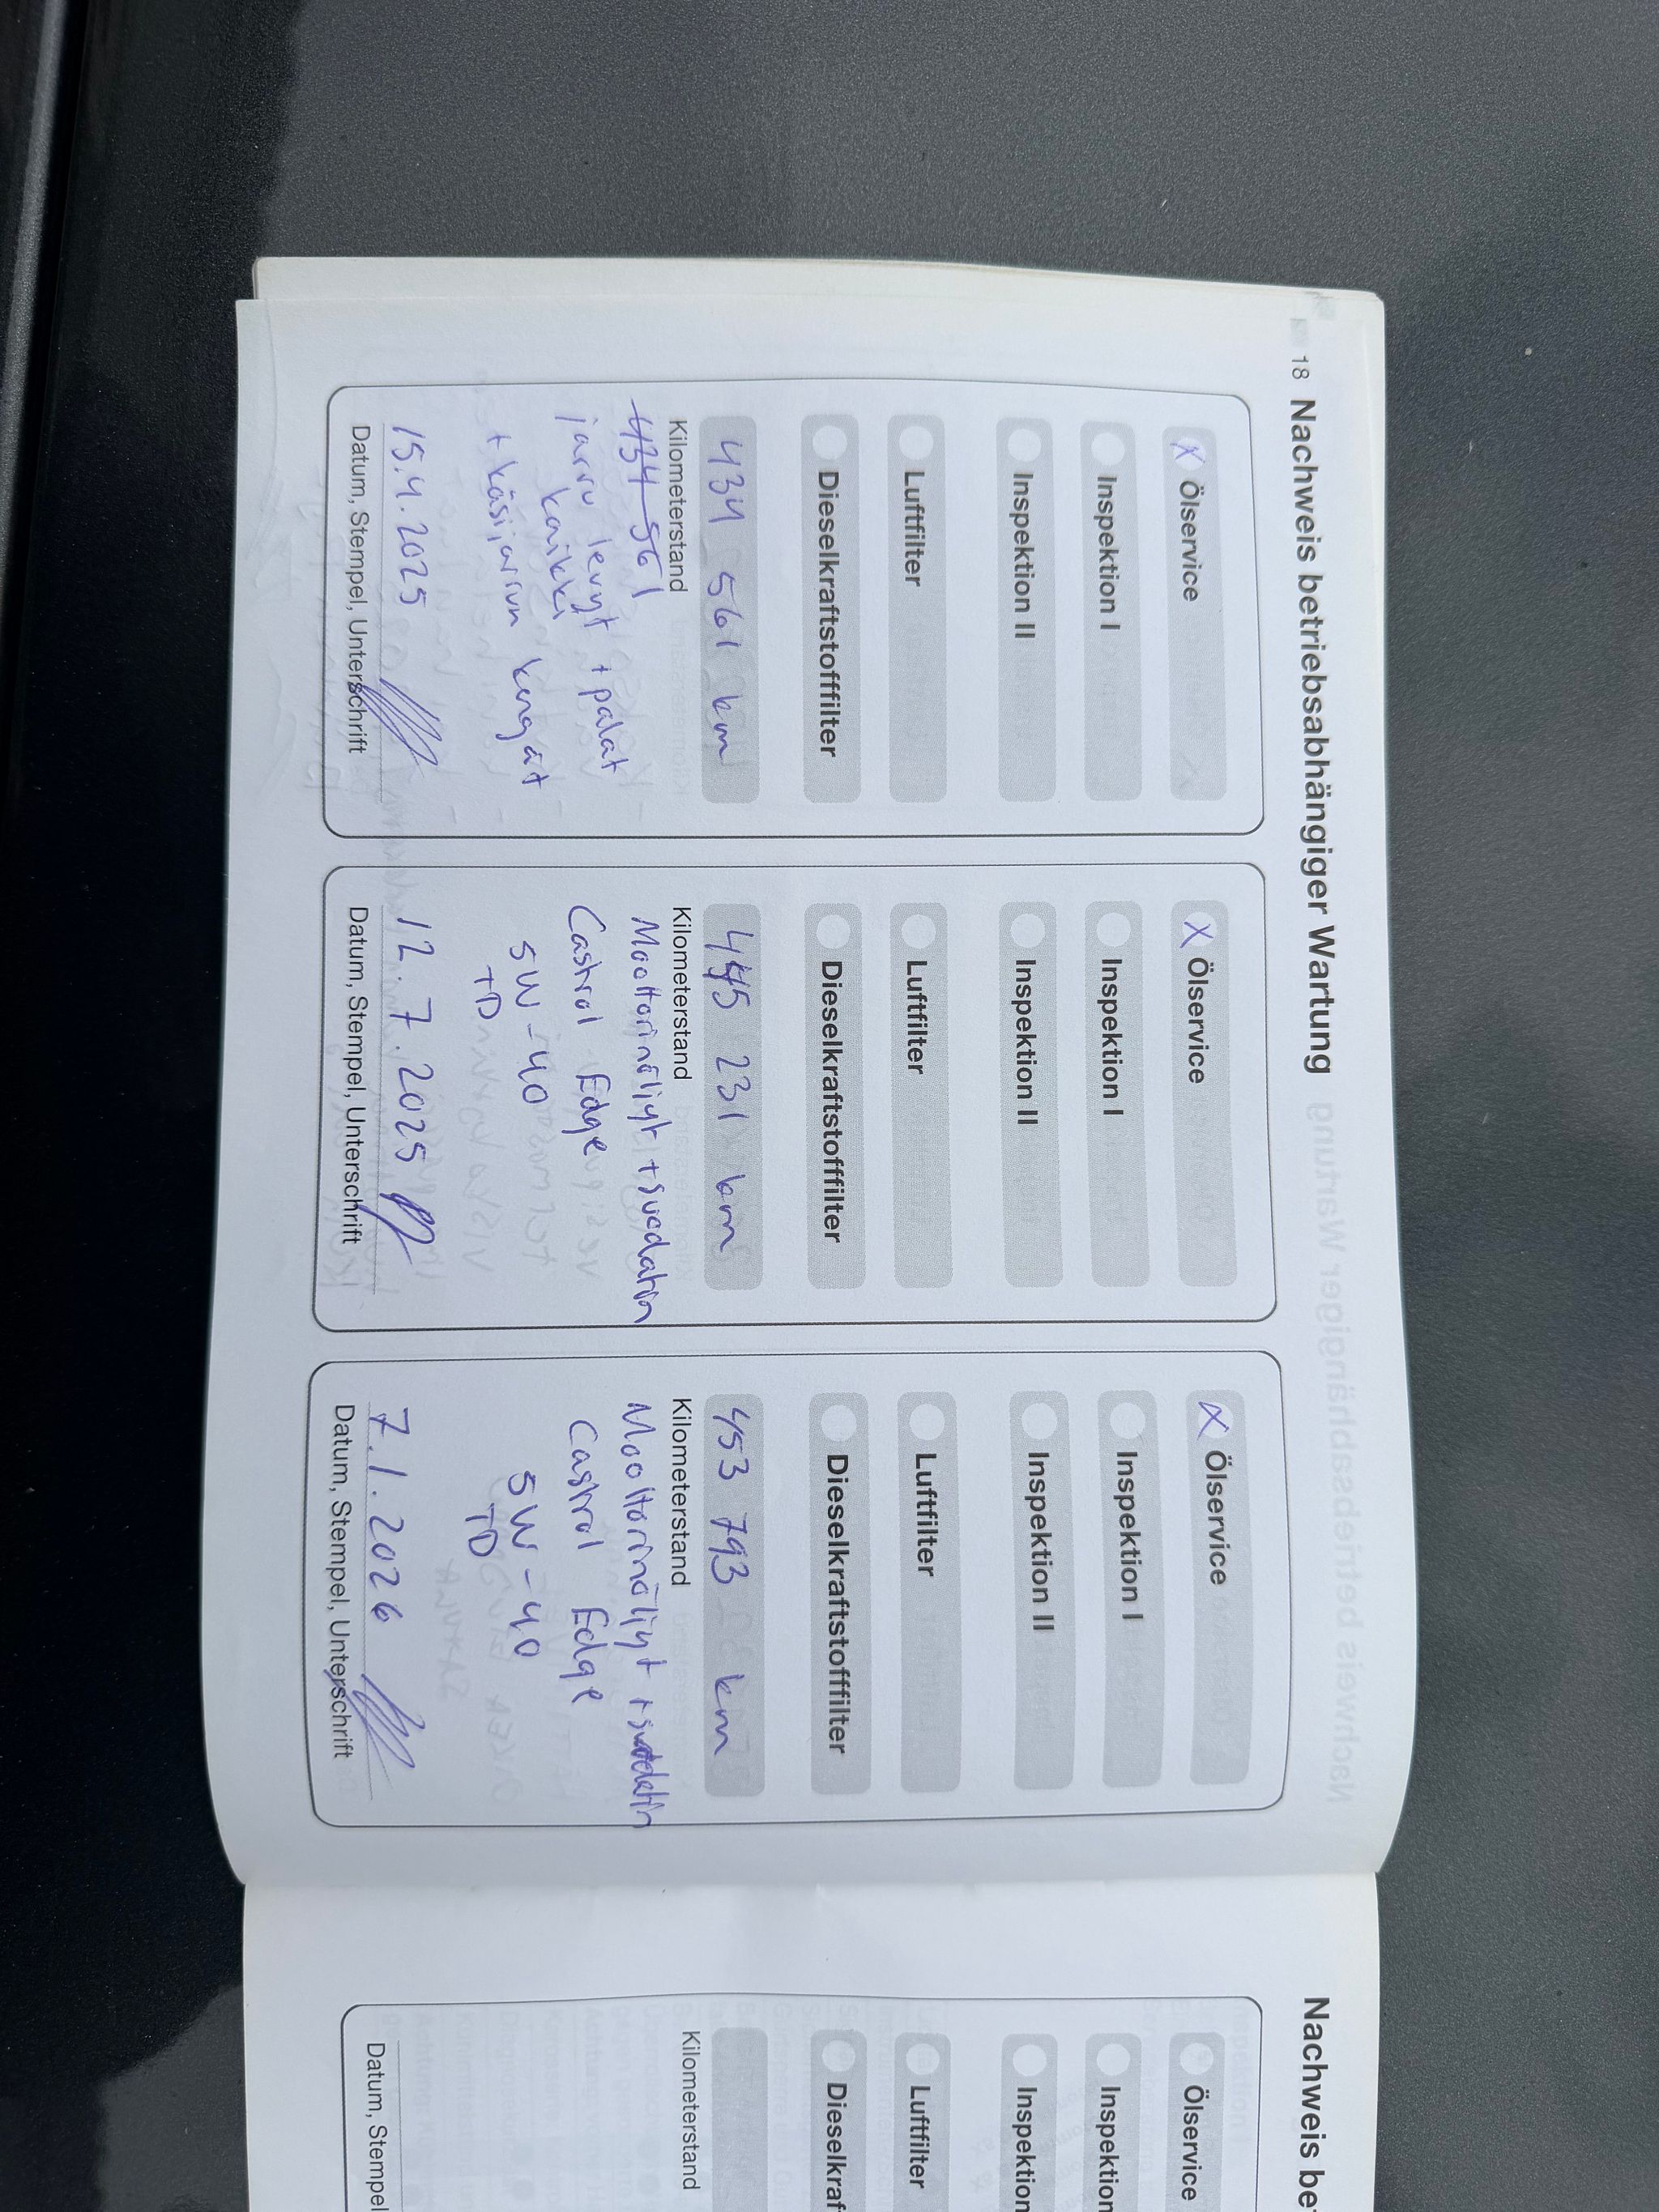 18 Nachweis betriebsabhängiger Wartung
X Ölservice
Inspektion I
Inspektion II
Luftfilter
Dieselkraftstofffilter
434 561 km
Kilometerstand
434 561
jarru levyt + palat
kaikki
+ käsijarrun kengät
15.4.2025
Datum, Stempel, Unterschrift
X Ölservice
Inspektion I
Inspektion II
Luftfilter
Dieselkraftstofffilter
445 231 km
Kilometerstand
Moottoriöljyt + suodatin
Castrol Edge
5W-40
TD
12.7.2025
Datum, Stempel, Unterschrift
X Ölservice
Inspektion I
Inspektion II
Luftfilter
Dieselkraftstofffilter
453 793 km
Kilometerstand
Moottoriöljyt + suodatin
Castrol Edge
5W-40
TD
7.1.2026
Datum, Stempel, Unterschrift
Nachweis be
Ölservice
Inspektion
Inspektion
Luftfilter
Dieselkraf
Kilometerstand
Datum, Stempel